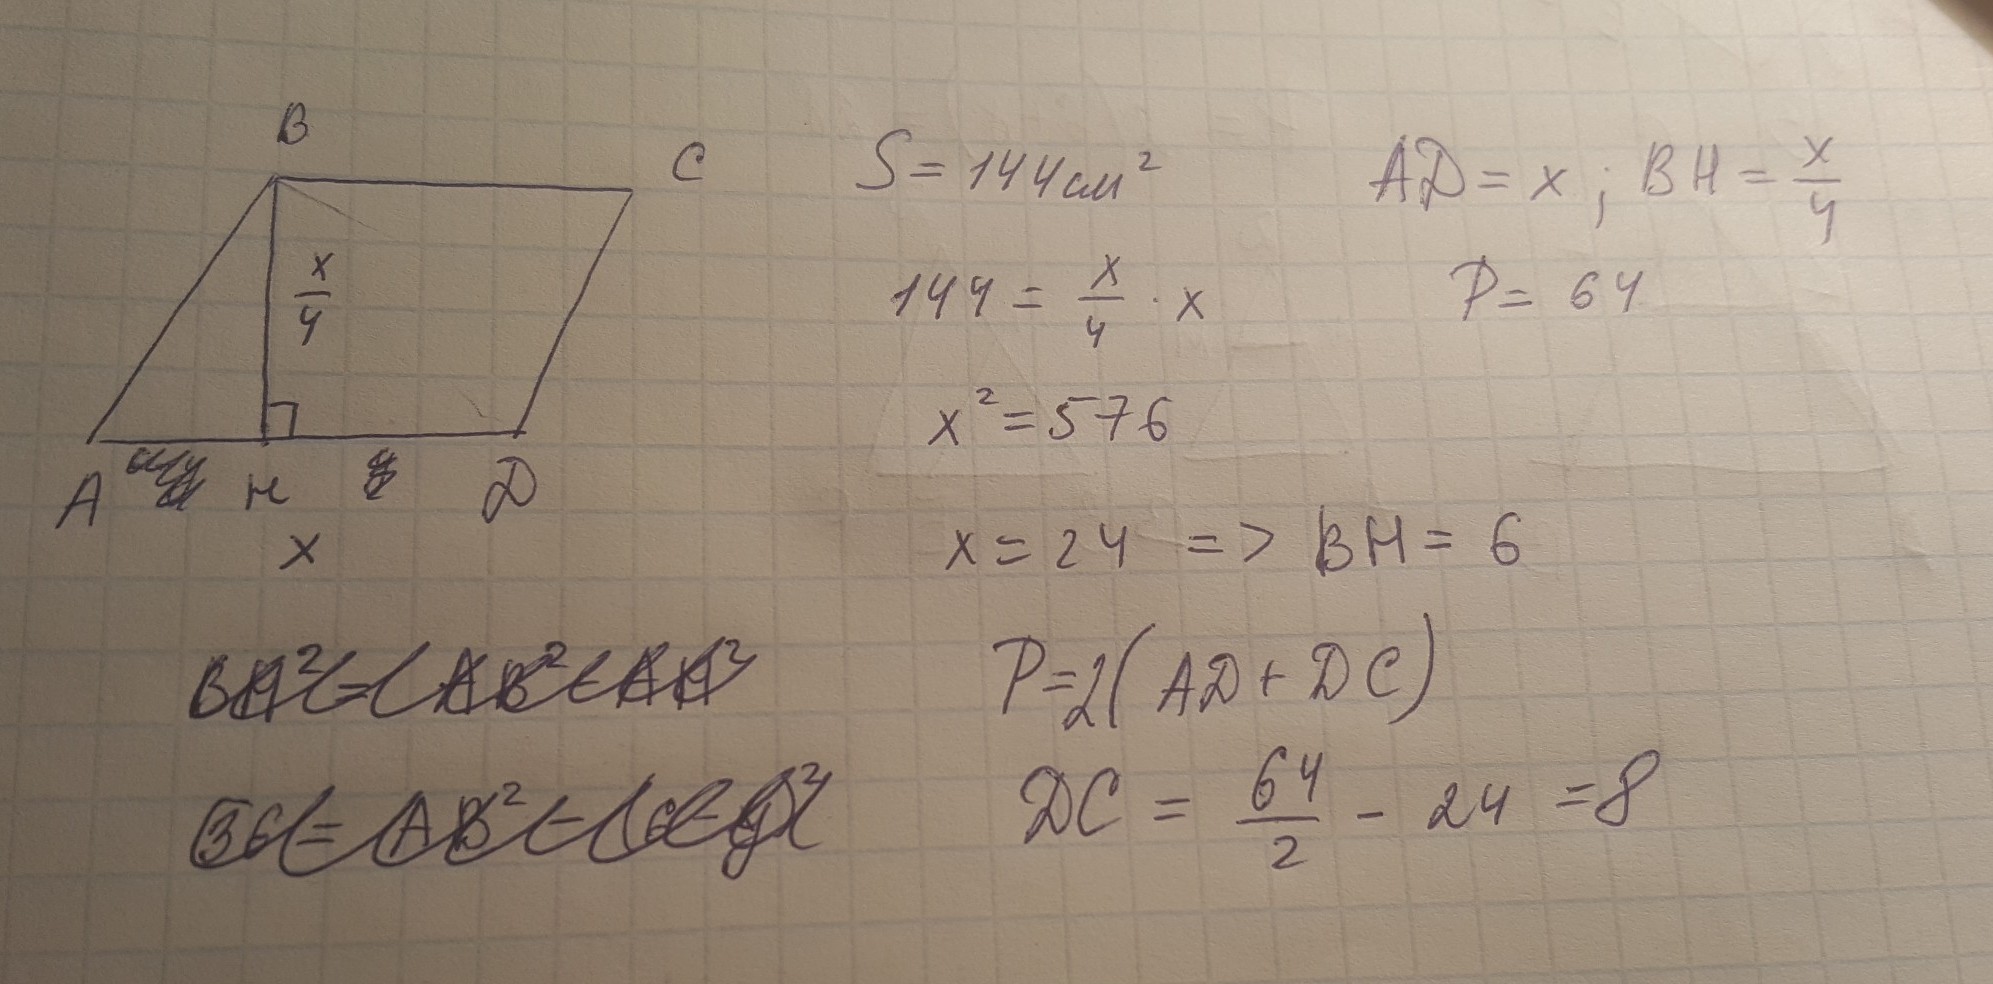 B
C
x/4
A H D
x
S = 144 см²
AD = x ; BH = x/4
144 = x/4 · x
P = 64
x² = 576
x = 24 => BH = 6
P=2(AD + DC)
DC = 64/2 - 24 = 8